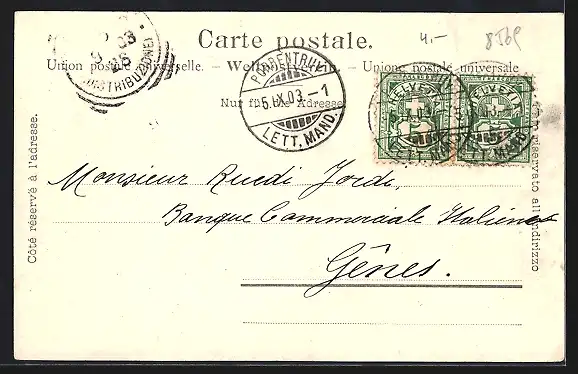 4.-
Carte postale.
Union postale universelle. — Weltpostverein. — Unione postale universale
Nur für die Adresse
PORRENTRUY
-5.IX.03.-1
LETT. MAND.
HELVETIA
HELVETIA
DISTRIBUZIONE
Côté réservé à l'adresse.
Lato riservato all'indirizzo
Monsieur Ruedi Jordi,
Banque Commerciale Italienne
Gênes.